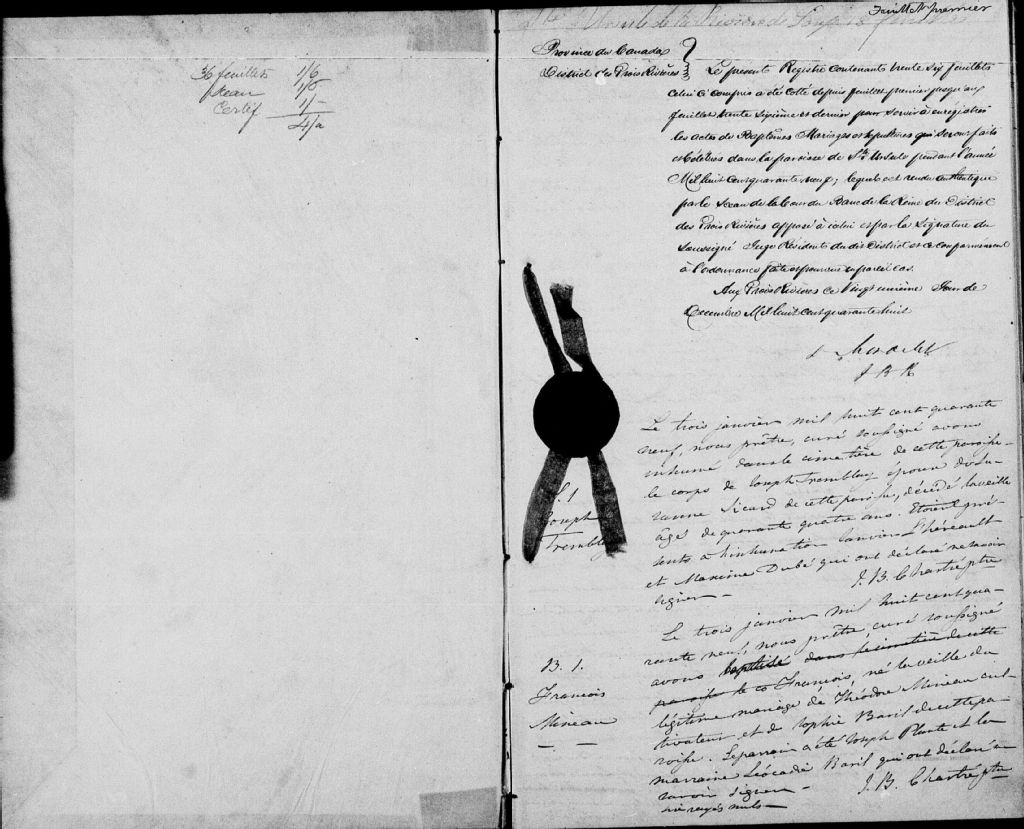 36 feuillets 1/6
Sceau 1/6
Certif 1/-
4/a
Feuillet premier
Ste Ursule de la Rivière du Loup
Province du Canada
District des Trois Rivières
Le present Registre contenant trente six feuillets
celui ci compris a été cotté depuis feuillet premier jusqu'au
feuillet trente sixième et dernier pour servir à enregistrer
les actes de Baptêmes Mariages et sepultures qui seront faits
et célébrés dans la paroisse de Ste Ursule pendant l'année
Mil huit cent quarante neuf; lequel est rendu authentique
par le Sceau de la Cour du Banc de la Reine du District
des Trois Rivières apposé à icelui et par la Signature du
Soussigné Juge Résident du dit District et ce conformément
à l'ordonnance faite et pourvue en pareil cas.
Aux Trois Rivières ce Vingt unième Jour de
Décembre Mil huit cent quarante huit
J B R
S. 1
Joseph
Tremblay
Le trois janvier mil huit cent quarante
neuf, nous prêtre, curé soussigné avons
inhumé dans le cimetière de cette paroisse
le corps de Joseph Tremblay époux de Su-
zanne Sicard de cette paroisse, décédé la veille
âgé de quarante quatre ans. Etoient pré-
sents à l'inhumation Janvier L'héreault
et Maxime Dubé qui ont déclaré ne savoir
signer — J. B. Chartré ptre
B. 1.
François
Mineau
Le trois janvier mil huit cent qua-
rante neuf, nous prêtre, curé soussigné
avons baptisé dans le cimetière de cette
paroisse le co François, né la veille du
légitime mariage de Théodore Mineau cul-
tivateur et de Sophie Baril de cette pa-
roisse. Le parrain a été Joseph Plante et la
marraine Léocadie Baril qui ont déclaré ne
savoir signer — J. B. Chartré ptre
rayés nuls —